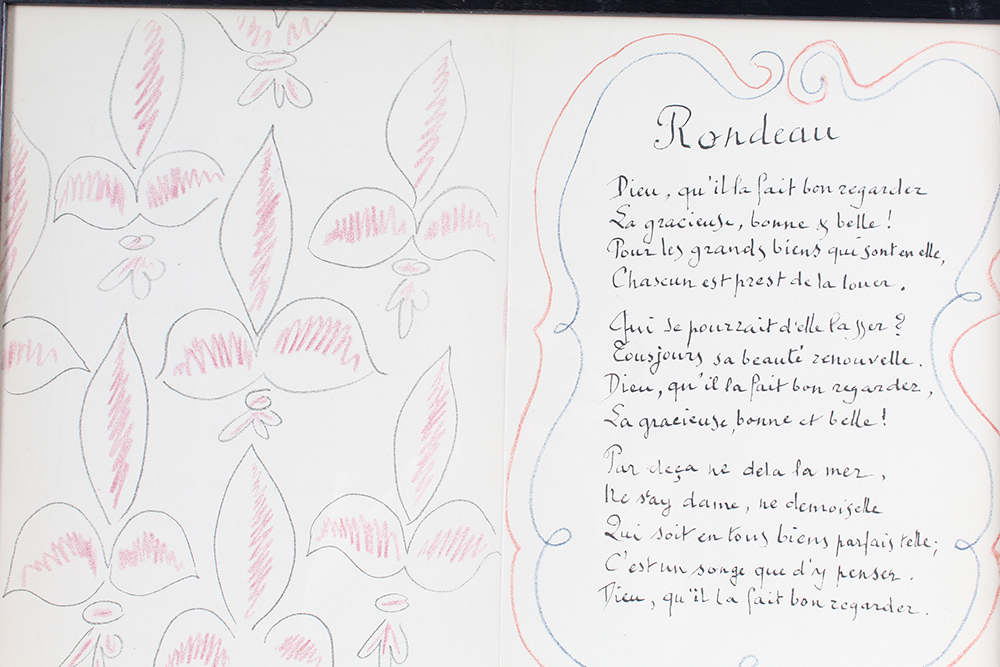 Rondeau
Dieu, qu'il la fait bon regarder
La gracieuse, bonne & belle !
Pour les grands biens qui sont en elle,
Chascun est prest de la louer.
Qui se pourrait d'elle lasser ?
Tousjours sa beauté renouvelle.
Dieu, qu'il la fait bon regarder,
La gracieuse, bonne et belle !
Par deça ne dela la mer,
Ne s'ay dame, ne demoiselle
Qui soit en tous biens parfais telle;
C'est un songe que d'y penser.
Dieu, qu'il la fait bon regarder.